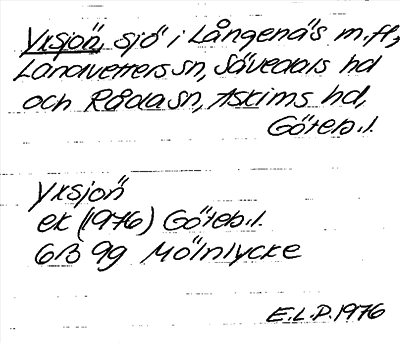 Yxsjön, sjö i Långenäs m.fl,
Landvetters sn, Sävedals hd
och Råda sn, Askims hd,
Göteb.l.
Yxsjön
ek (1976) Göteb.l.
6B 9g Mölnlycke
E.L.P. 1976